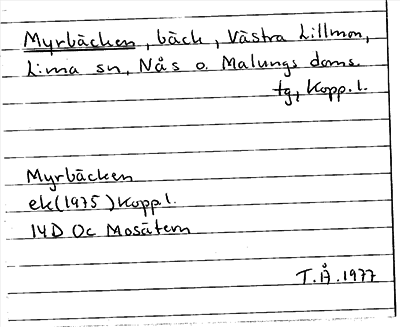 Myrbäcken, bäck, Västra Lillmon,
Lima sn, Nås o. Malungs doms.
tg, Kopp.l.
Myrbäcken
ek(1975)Koppl.
14D Oc Mosätern
T.Å.1977